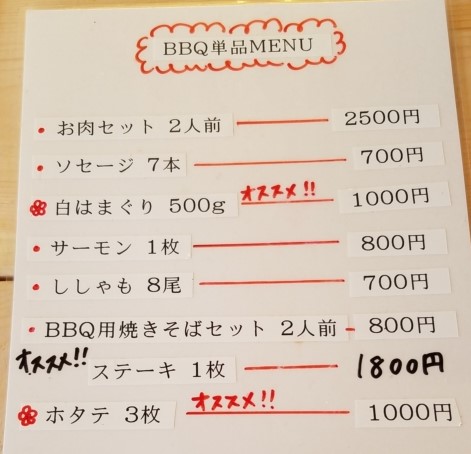 BBQ単品MENU
・お肉セット 2人前 2500円
・ソセージ 7本 700円
白はまぐり 500g オススメ!! 1000円
・サーモン 1枚 800円
・ししゃも 8尾 700円
・BBQ用焼きそばセット 2人前 800円
オススメ!! ステーキ 1枚 1800円
ホタテ 3枚 オススメ!! 1000円